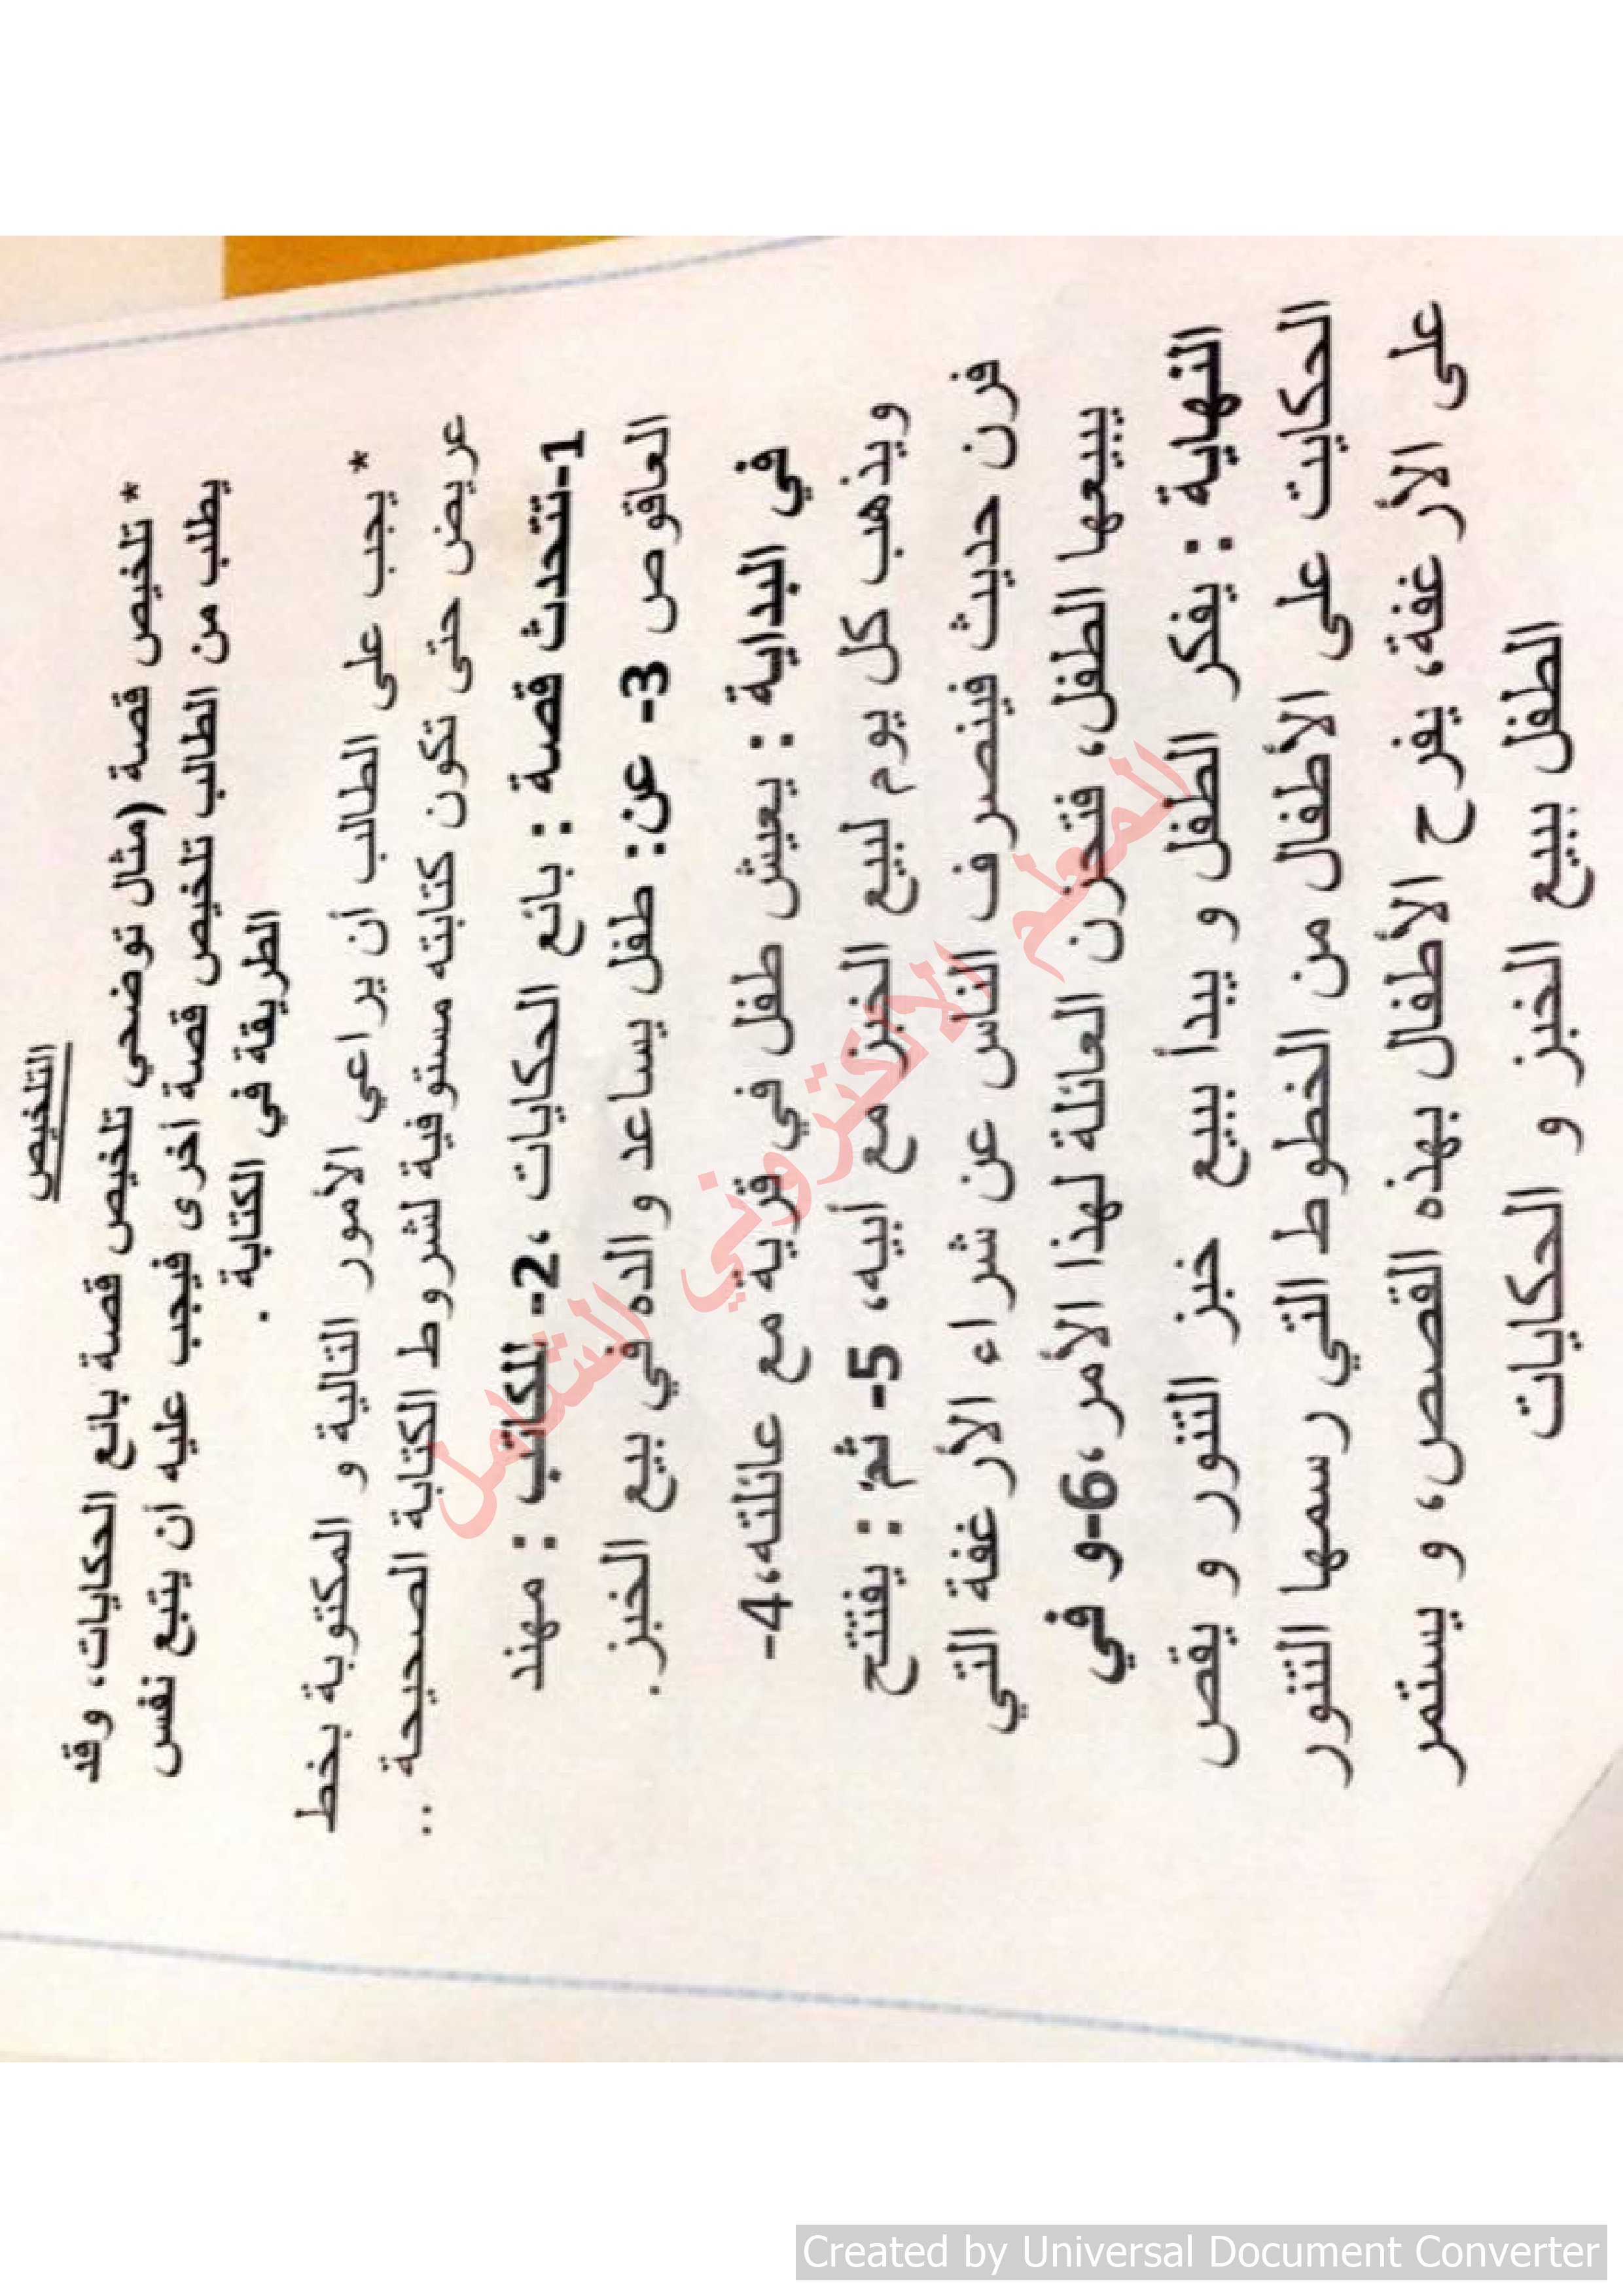 التلخيص
* تلخيص قصة (مثال توضحي تلخيص قصة بائع الحكايات، وقد
يطلب من الطالب تلخيص قصة أخرى فيجب عليه أن يتبع نفس
الطريقة في الكتابة .
* يجب على الطالب أن يراعي الأمور التالية و المكتوبة بخط
عريض حتى تكون كتابته مستوفية لشروط الكتابة الصحيحة ..
1-تتحدث قصة : بائع الحكايات ،2- للكاتب : مهند
العاقوص 3- عن: طفل يساعد والده في بيع الخبز.
في البداية : يعيش طفل في قرية مع عائلته،4-
ويذهب كل يوم لبيع الخبز مع أبيه، 5- ثم : يفتتح
فرن حديث فينصرف الناس عن شراء الأرغفة التي
يبيعها الطفل، فتحزن العائلة لهذا الأمر ،6-و في
النهاية : يفكر الطفل و يبدأ ببيع خبز التنور و يقص
الحكايت على الأطفال من الخطوط التي رسمها التنور
على الأرغفة، يفرح الأطفال بهذه القصص، و يستمر
الطفل ببيع الخبز و الحكايات
المعلم الالكتروني الشامل
Created by Universal Document Converter